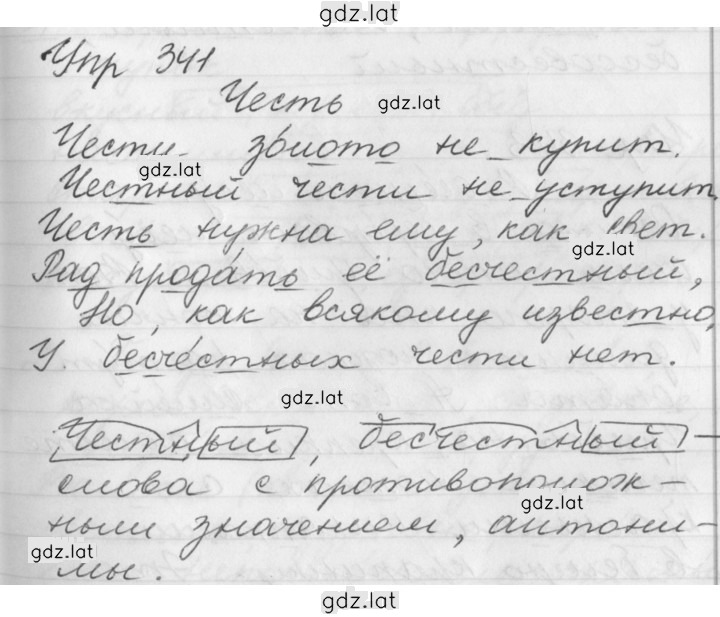 gdz.lat
Упр 341
Честь
gdz.lat
Чести збиото не купит.
gdz.lat
Честный чести не уступит
Честь нужна ему, как свет.
gdz.lat
Рад продать её бесчестный,
Но, как всякому известно,
У бесчестных чести нет.
gdz.lat
Честный, бесчестный –
слова с противополож-
gdz.lat
ными значением, антони-
gdz.lat
мы.
gdz.lat